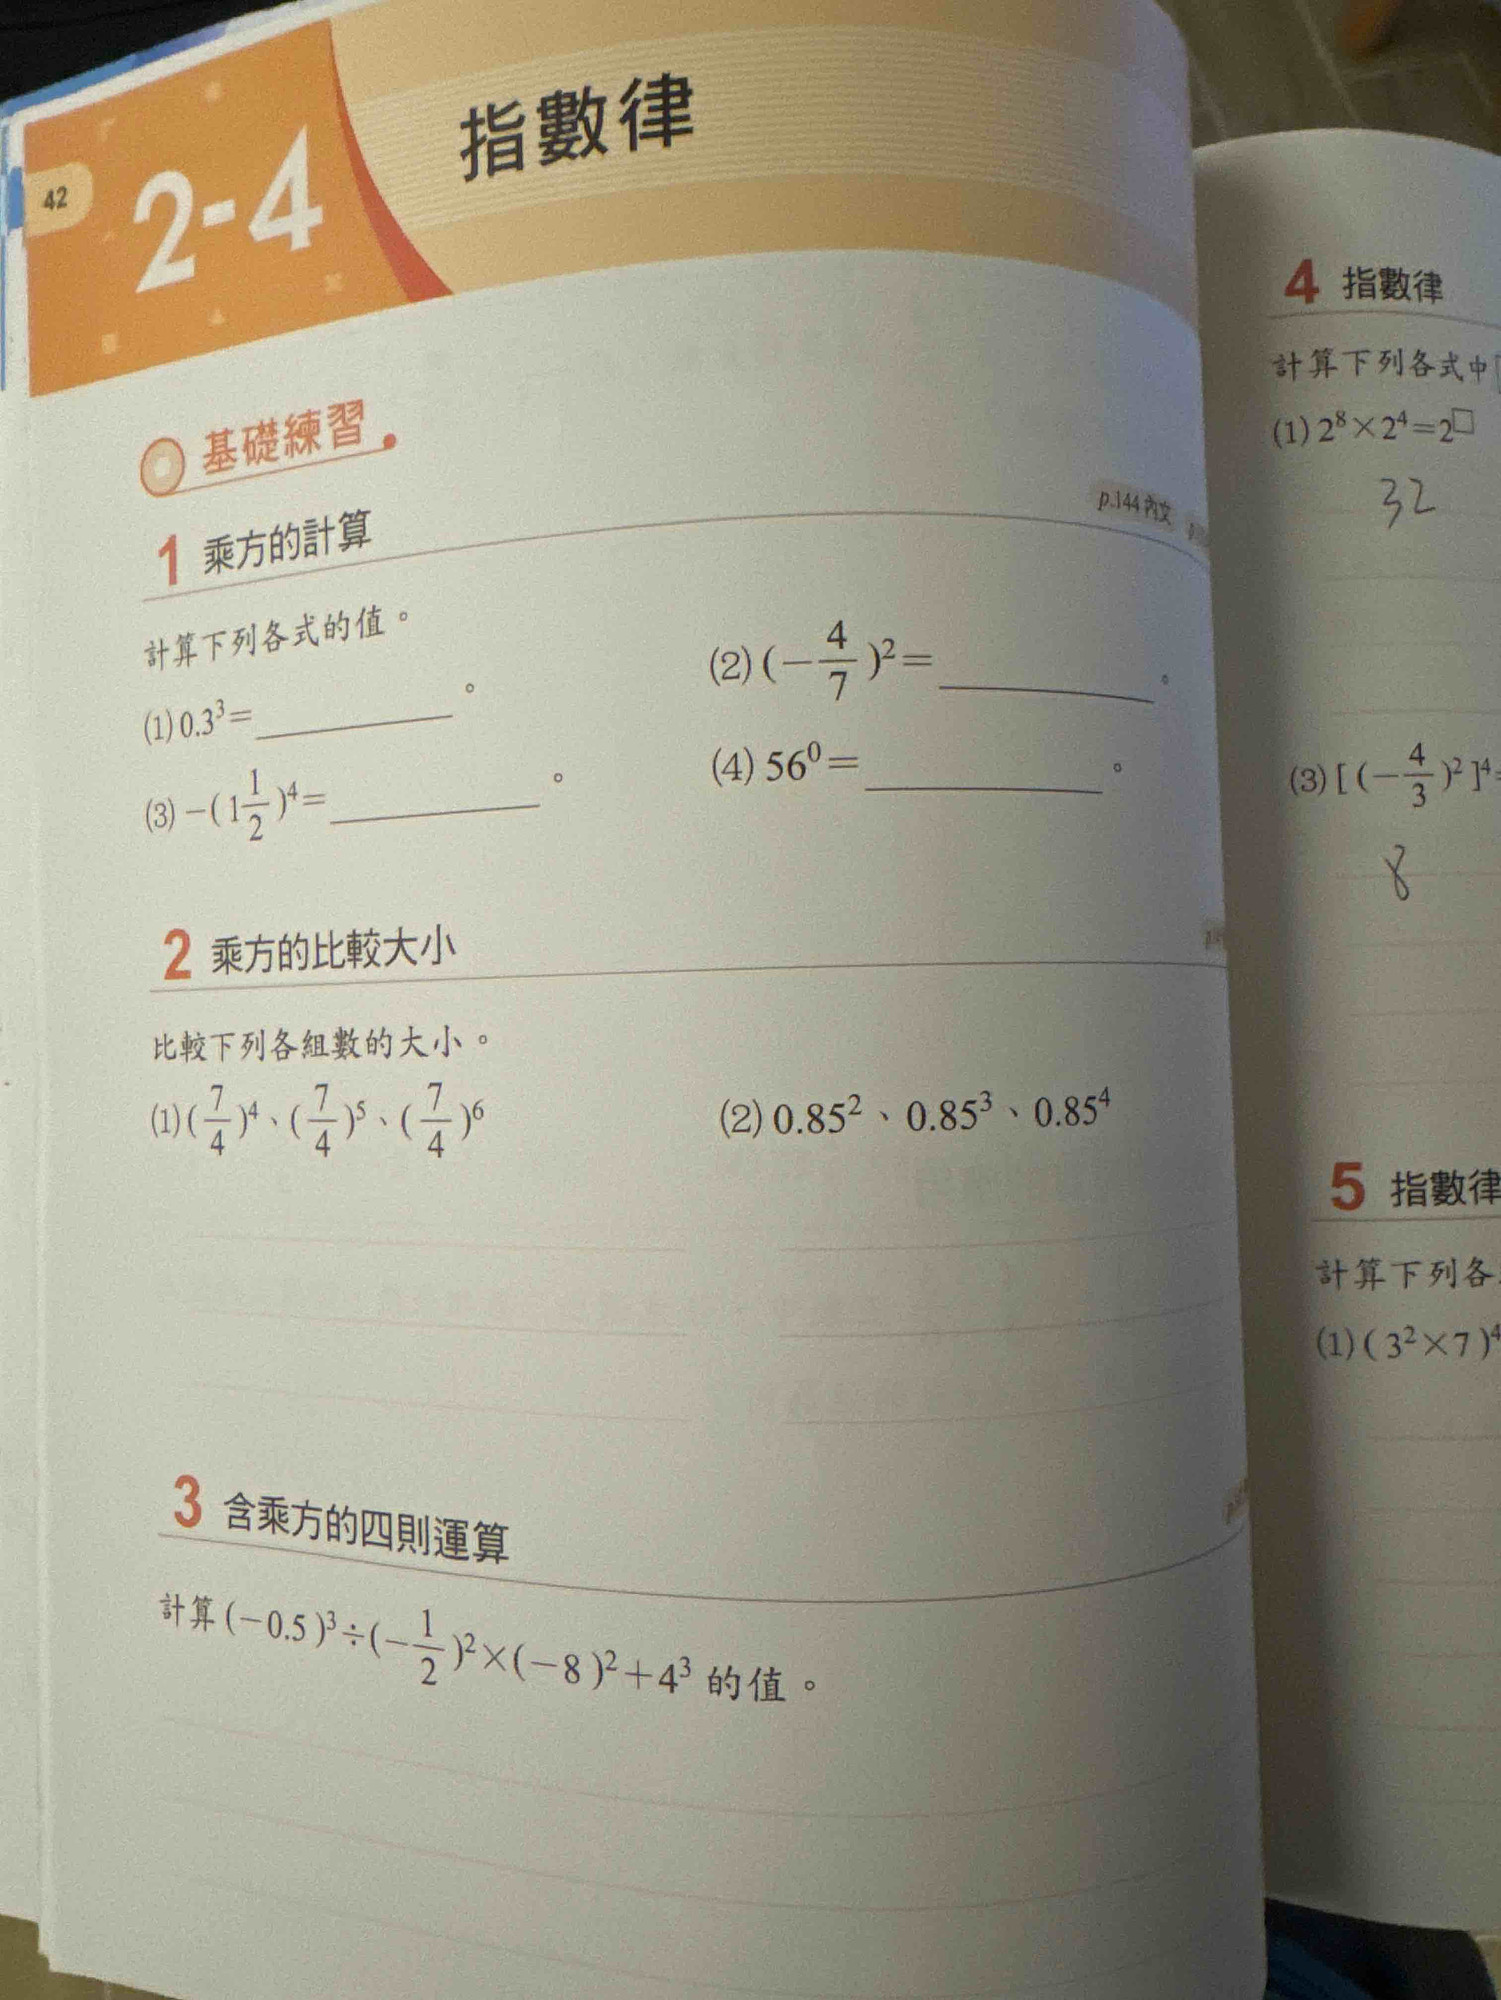 42
2-4 指數律
基礎練習
1 乘方的計算
p.144內文
計算下列各式的值。
(1) 0.3³=________。
(2) (-4/7)²=________。
(3) -(1 1/2)⁴=________。
(4) 56⁰=________。
2 乘方的比較大小
比較下列各組數的大小。
(1) (7/4)⁴、(7/4)⁵、(7/4)⁶
(2) 0.85²、0.85³、0.85⁴
3 含乘方的四則運算
計算 (-0.5)³÷(-1/2)²×(-8)²+4³ 的值。
4 指數律
計算下列各式中
(1) 2⁸×2⁴=2□
32
(3) [(-4/3)²]⁴=
8
5 指數律
計算下列各
(1) (3²×7)⁴